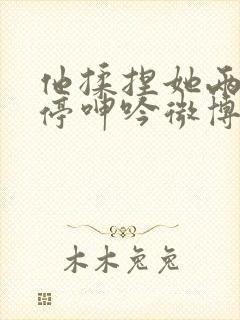 他揉捏她两
停呻吟微博
木木兔兔